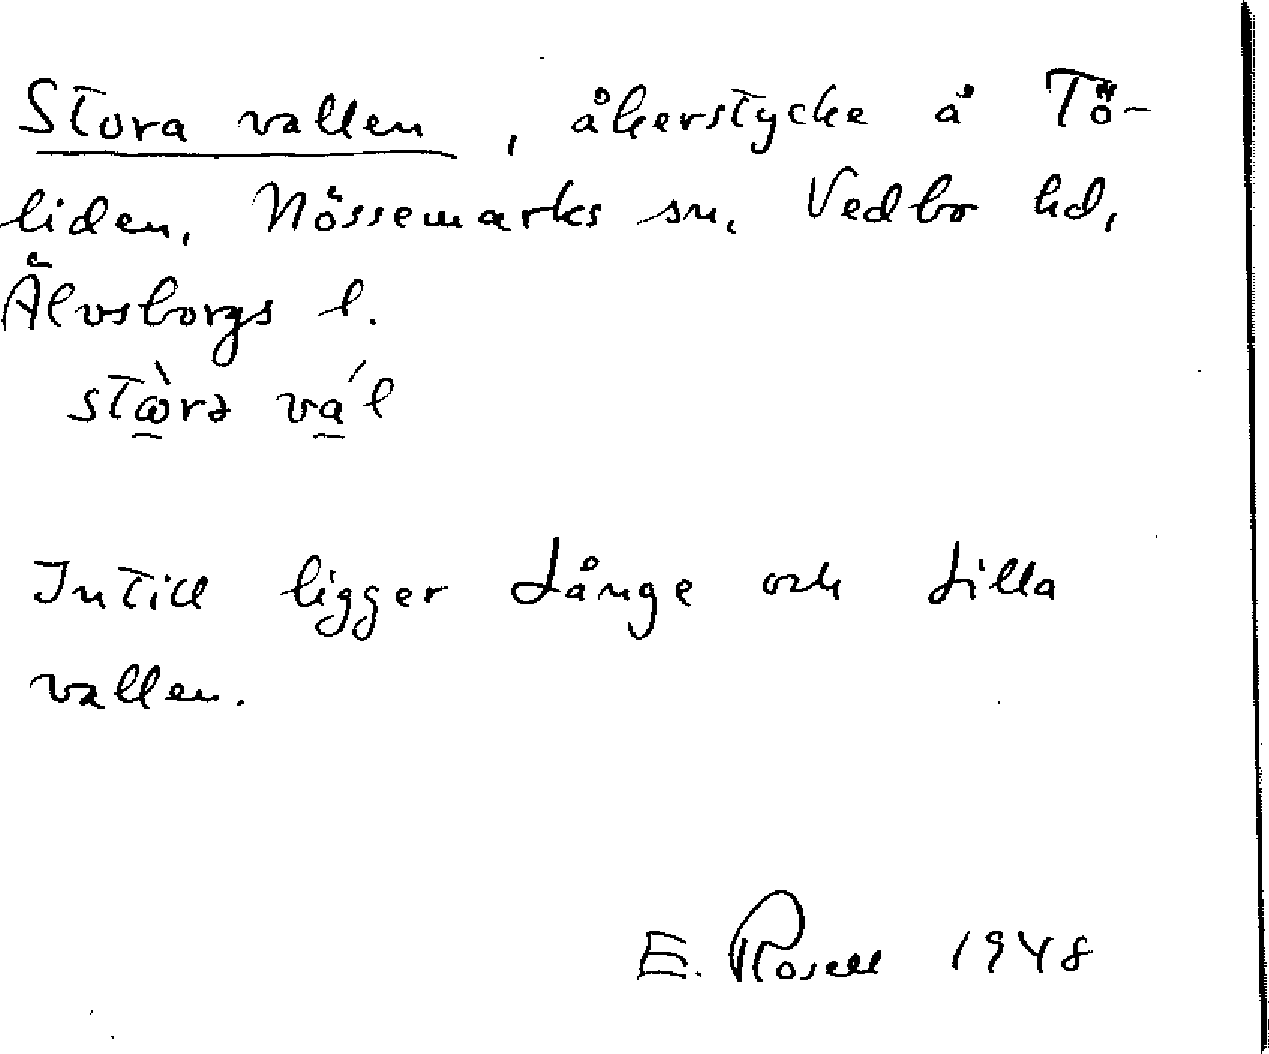 Stora vallen, åkerstycke å Tö-
liden, Nössemarks sn, Vedbo hd,
Älvsborgs l.
stɷ̀rə vál
Intill ligger Långe och Lilla
vallen.
E. Rosell 1948